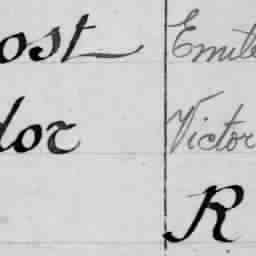 ost Emile
dor Victor
R